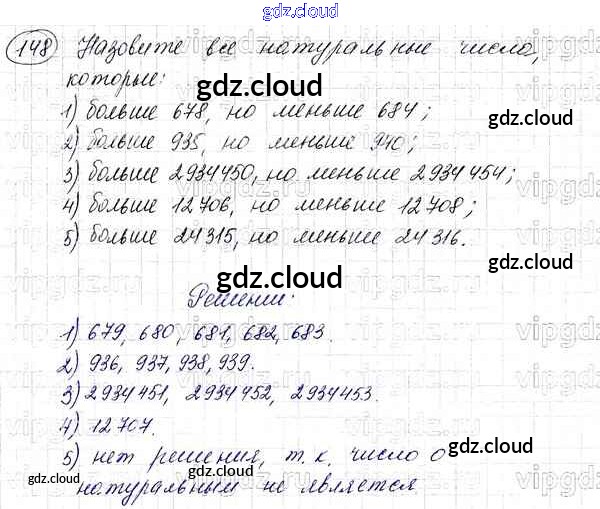 gdz.cloud
148 Назовите все натуральные числа,
которые:
gdz.cloud
1) больше 678, но меньше 684;
gdz.cloud
2) больше 935, но меньше 940;
3) больше 2934450, но меньше 2934454;
4) больше 12706, но меньше 12708;
5) больше 24315, но меньше 24316.
gdz.cloud
Решении:
gdz.cloud
1) 679, 680, 681, 682, 683.
2) 936, 937, 938, 939.
3) 2934451, 2934452, 2934453.
4) 12707.
5) нет решения, т.к. число 0
gdz.cloud
gdz.cloud
gdz.cloud
натуральным не является